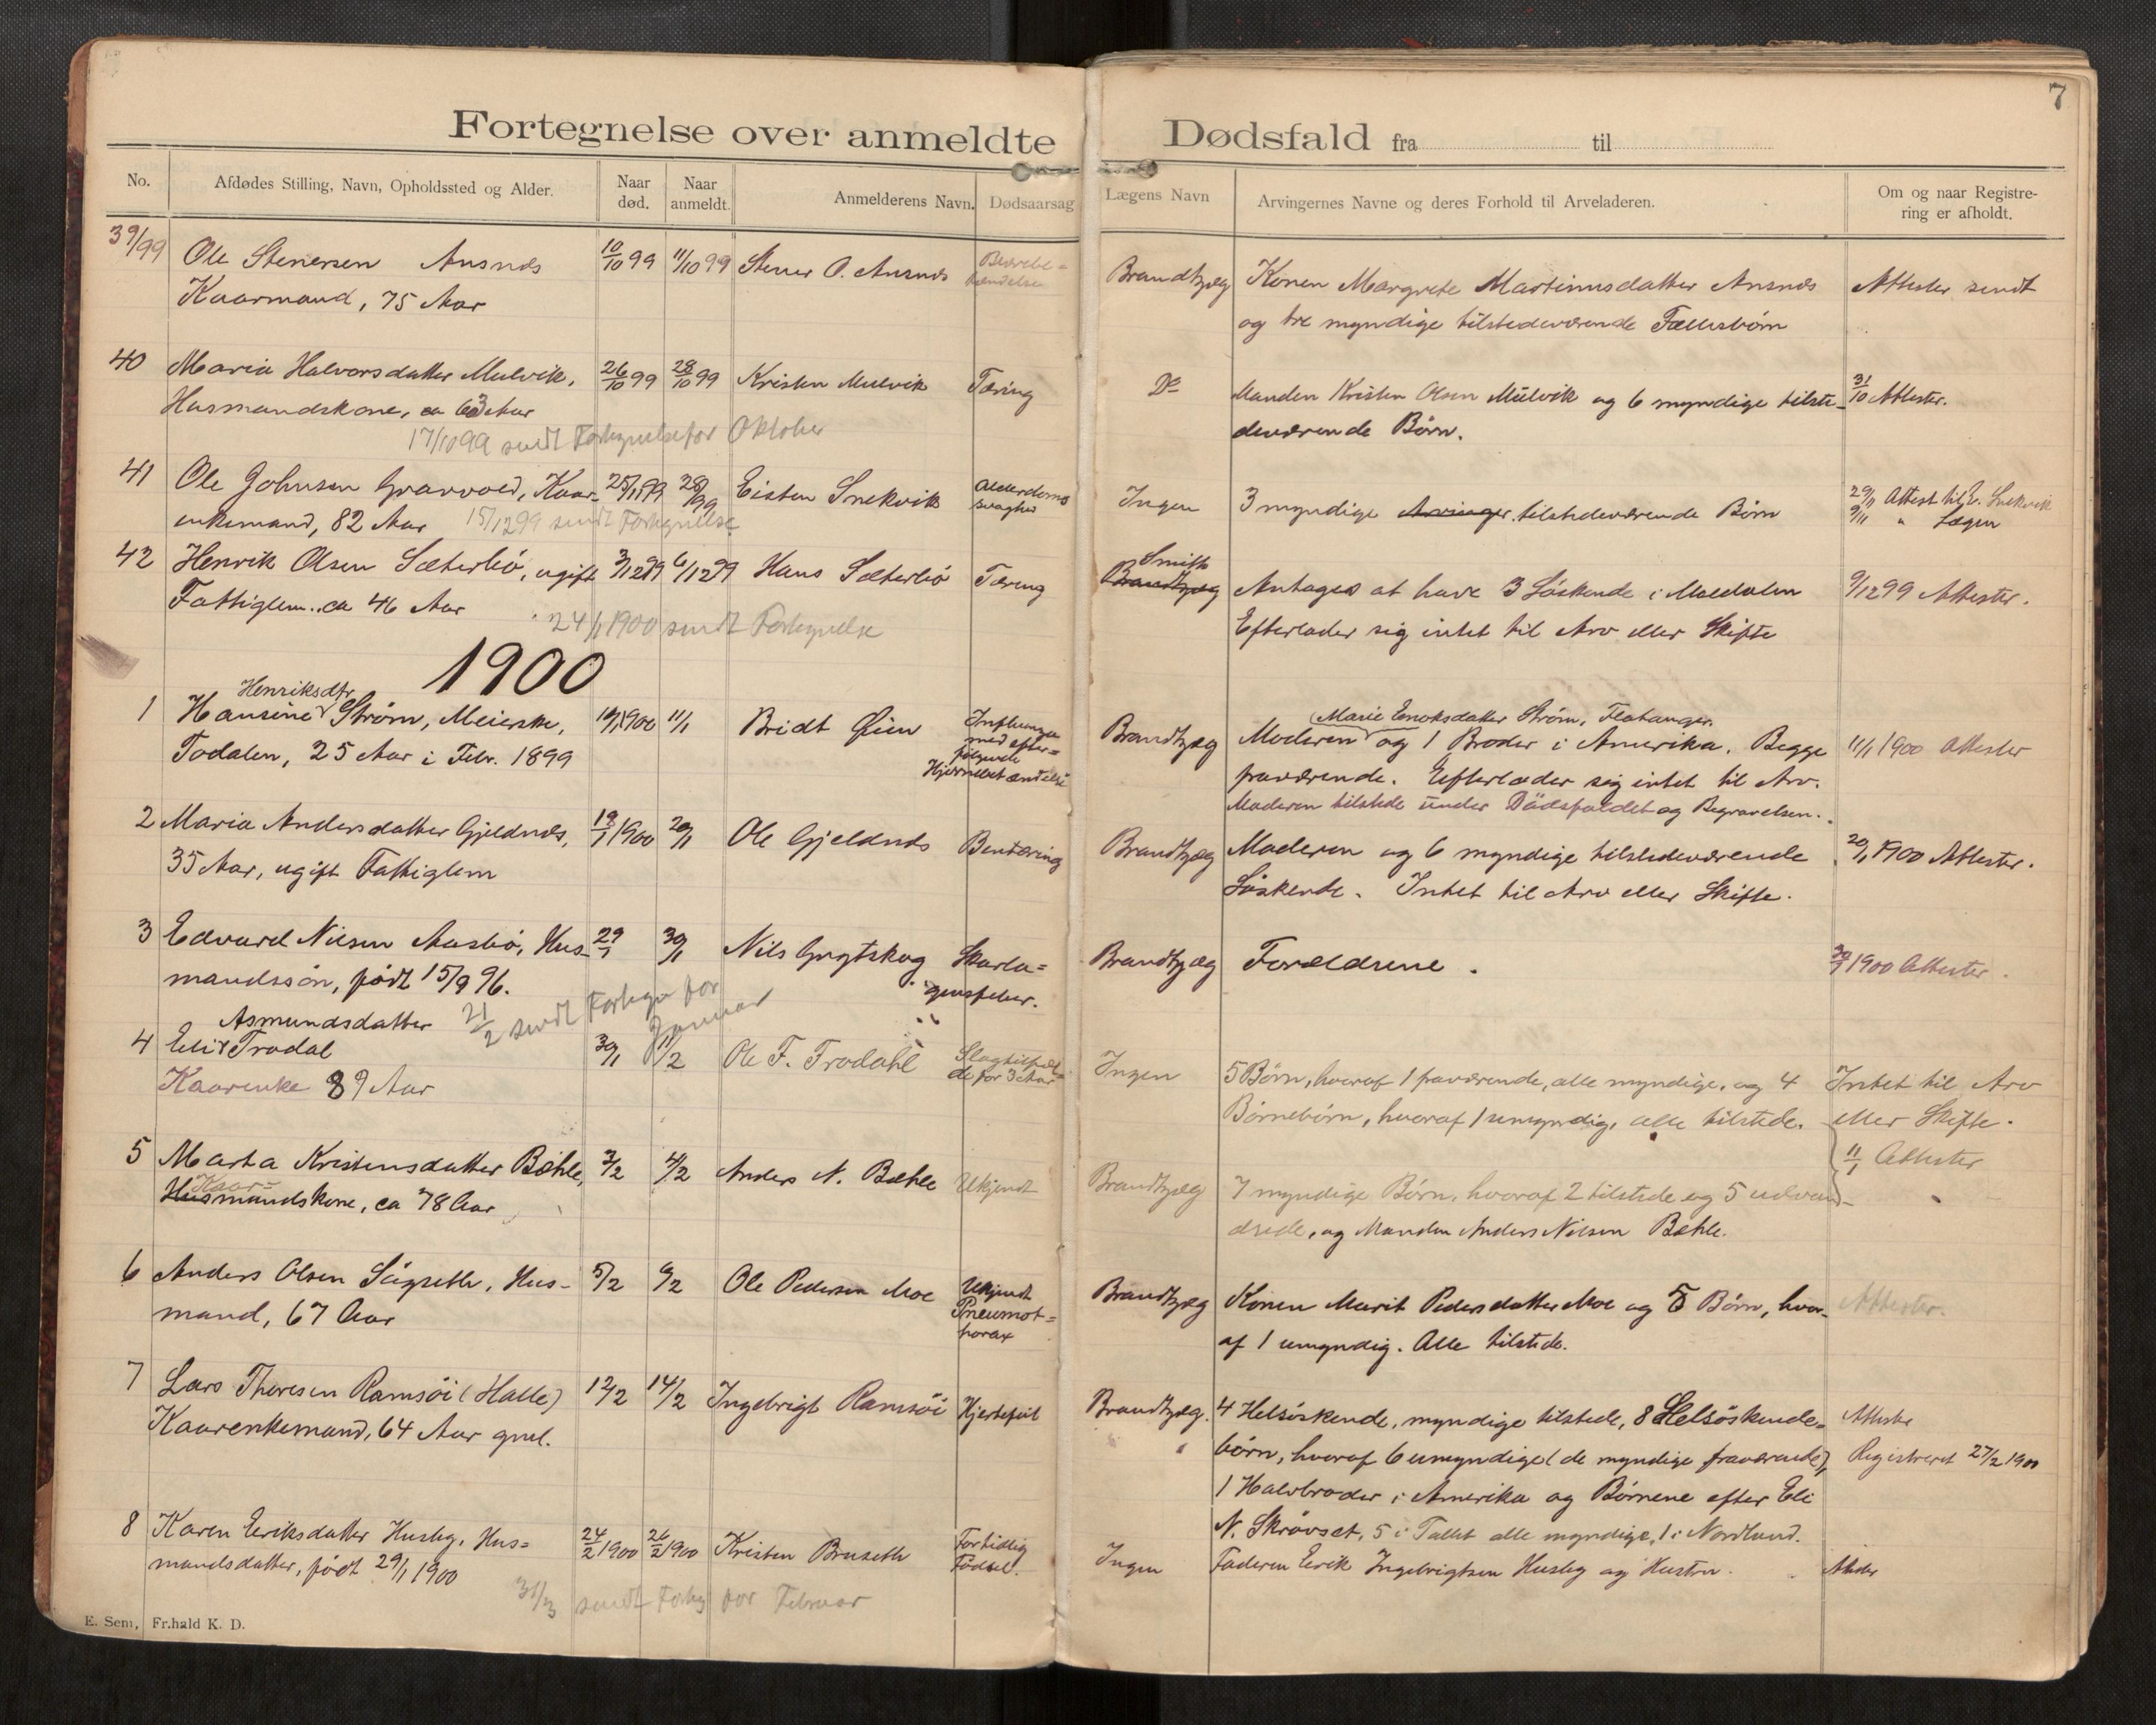 7
Fortegnelse over anmeldte Dødsfald fra til
No. Afdødes Stilling, Navn, Opholdssted og Alder. Naar død. Naar anmeldt. Anmelderens Navn. Dødsaarsag Lægens Navn Arvingernes Navne og deres Forhold til Arveladeren. Om og naar Registrering er afholdt.
39/99 Ole Stenersen Ausnæs 10/10 99 11/10 99 Stener O. Ausnæs Brandtzæg Konen Margrete Martinusdatter Ausnæs Attester sendt
Kaarmand, 75 Aar og tre myndige tilstedeværende Fællesbörn
40 Maria Halvorsdatter Mulvik, 26/10 99 28/10 99 Kristen Mulvik Tæring Do Manden Kristen Olsen Mulvik og 6 myndige tilste- 31/10 Attester.
Husmandskone, ca 63 Aar deværende Börn.
17/10 99 sendt Fortegnelse for Oktober
41 Ole Johnsen Gravvold, Kaar- 25/11 99 28/11 99 Eisten Snekvik Alderdoms svaghed Ingen 3 myndige Arvinger tilstedeværende Börn 29/11 Attest til E. Snekvik
enkemand, 82 Aar 15/12 99 sendt Fortegnelse 9/11 " Lægen
42 Henrik Olsen Sæterbö, ugift 3/12 99 6/12 99 Hans Sæterbö Tæring Smith Brandtzæg Antages at have 3 Söskende i Maldalen 9/12 99 Attester.
Fattiglem. ca 46 Aar Efterlader sig intet til Arv eller Skifte
24/1 1900 sendt Fortegnelse
1900
Henriksdtr Marie Enoksdatter Strøm, Flatanger.
1 Hansine Strøm, Meierske, 10/1 1900 11/1 Bridt Øien Influenza Brandtzæg Moderen og 1 Broder i Amerika. Begge 11/1 1900 Attester
Todalen, 25 Aar i Febr. 1899 med efterfölgende Hjernebetændelse fraværende. Efterlader sig intet til Arv.
Moderen tilstede under Dödsfaldet og Begravelsen.
2 Maria Andersdatter Gjeldnæs, 19/1 1900 20/1 Ole Gjeldnæs Bentæring Brandtzæg Moderen og 6 myndige tilstedeværende 20/1 1900 Attester.
35 Aar, ugift Fattiglem Söskende. Intet til Arv eller Skifte.
3 Edvard Nilsen Aasbö, Hus- 29/1 30/1 Nils Grytskog Skarla= Brandtzæg Forældrene. 30/1 1900 Attester.
mandssön, födt 15/9 96. gensfeber.
21/2 sendt Fortegn for Januar
Asmundsdatter
4 Eli Trodal 30/1 11/2 Ole F. Trodahl Ingen 5 Börn, hvoraf 1 fraværende, alle myndige, og 4 Intet til Arv
Kaarenke 89 Aar de for 3 Aar Börnebörn, hvoraf 1 umyndig, alle tilstede. eller Skifte.
11/1 Attester
5 Marta Kristensdatter Bæhle, 3/2 4/2 Anders N. Bæhle Ukjendt Brandtzæg 7 myndige Börn, hvoraf 2 tilstede og 5 udvan-
Kaar=
Husmandskone, ca 78 Aar drede, og Manden Anders Nilsen Bæhle.
6 Anders Olsen Sögseth, Hus- 5/2 6/2 Ole Pedersen Moe Ukjendt Brandtzæg Konen Marit Pedersdatter Moe og 5 Börn, hvor- Attester.
mand, 67 Aar Pneumot=horax af 1 umyndig. Alle tilstede.
7 Lars Thoresen Ramsöi (Halle) 12/2 14/2 Ingebrigt Ramsöi Hjertefeil Brandtzæg. 4 Helsöskende, myndige tilstede, 8 Helsöskende= Attester
Kaarenkemand, 64 Aar gml. börn, hvoraf 6 umyndige (de myndige fraværende), Registreret 27/2 1900
1 Halvbroder i Amerika og Börnene efter Eli
N. Skrövset, 5 i Tallet alle myndige, 1 i Nordland.
8 Karen Eeriksdatter Husby, Hus= 24/2 1900 26/2 1900 Kristen Bruseth Fortidlig Födsel. Ingen Faderen Eerik Ingebrigtsen Husby og Hustru. Attester
mandsdatter, födt 29/1 1900
31/3 sendt Forteg for Februar
E. Sem, Fr.hald K. D.